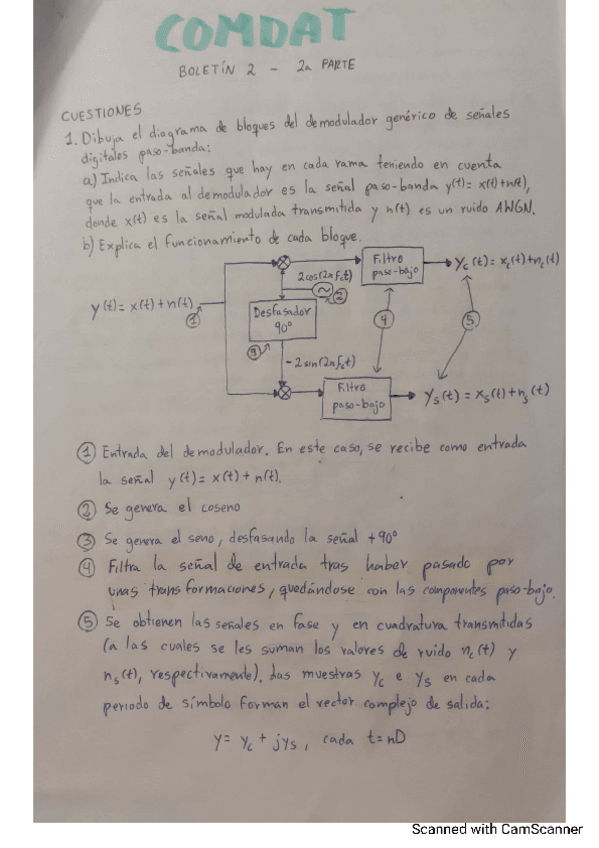 COMDAT
BOLETÍN 2 - 2a PARTE
CUESTIONES
1. Dibuja el diagrama de bloques del demodulador genérico de señales
digitales paso-banda:
a) Indica las señales que hay en cada rama teniendo en cuenta
que la entrada al demodulador es la señal paso-banda y(t)= x(t)+n(t),
donde x(t) es la señal modulada transmitida y n(t) es un ruido AWGN.
b) Explica el funcionamiento de cada bloque.
Filtro
paso-bajo
Yc(t)= xc(t)+nc(t)
2cos(2πfct)
②
y(t)= x(t)+n(t)
①
Desfasador
90°
③
④
⑤
-2sin(2πfct)
Filtro
paso-bajo
Ys(t)= xs(t)+ns(t)
① Entrada del demodulador. En este caso, se recibe como entrada
la señal y(t)= x(t)+n(t).
② Se genera el coseno
③ Se genera el seno, desfasando la señal +90°
④ Filtra la señal de entrada tras haber pasado por
unas transformaciones, quedándose con las componentes paso-bajo.
⑤ Se obtienen las señales en fase y en cuadratura transmitidas
(a las cuales se les suman los valores de ruido nc(t) y
ns(t), respectivamente). Las muestras yc e ys en cada
periodo de símbolo forman el vector complejo de salida:
y= yc + jys, cada t=nD
Scanned with CamScanner